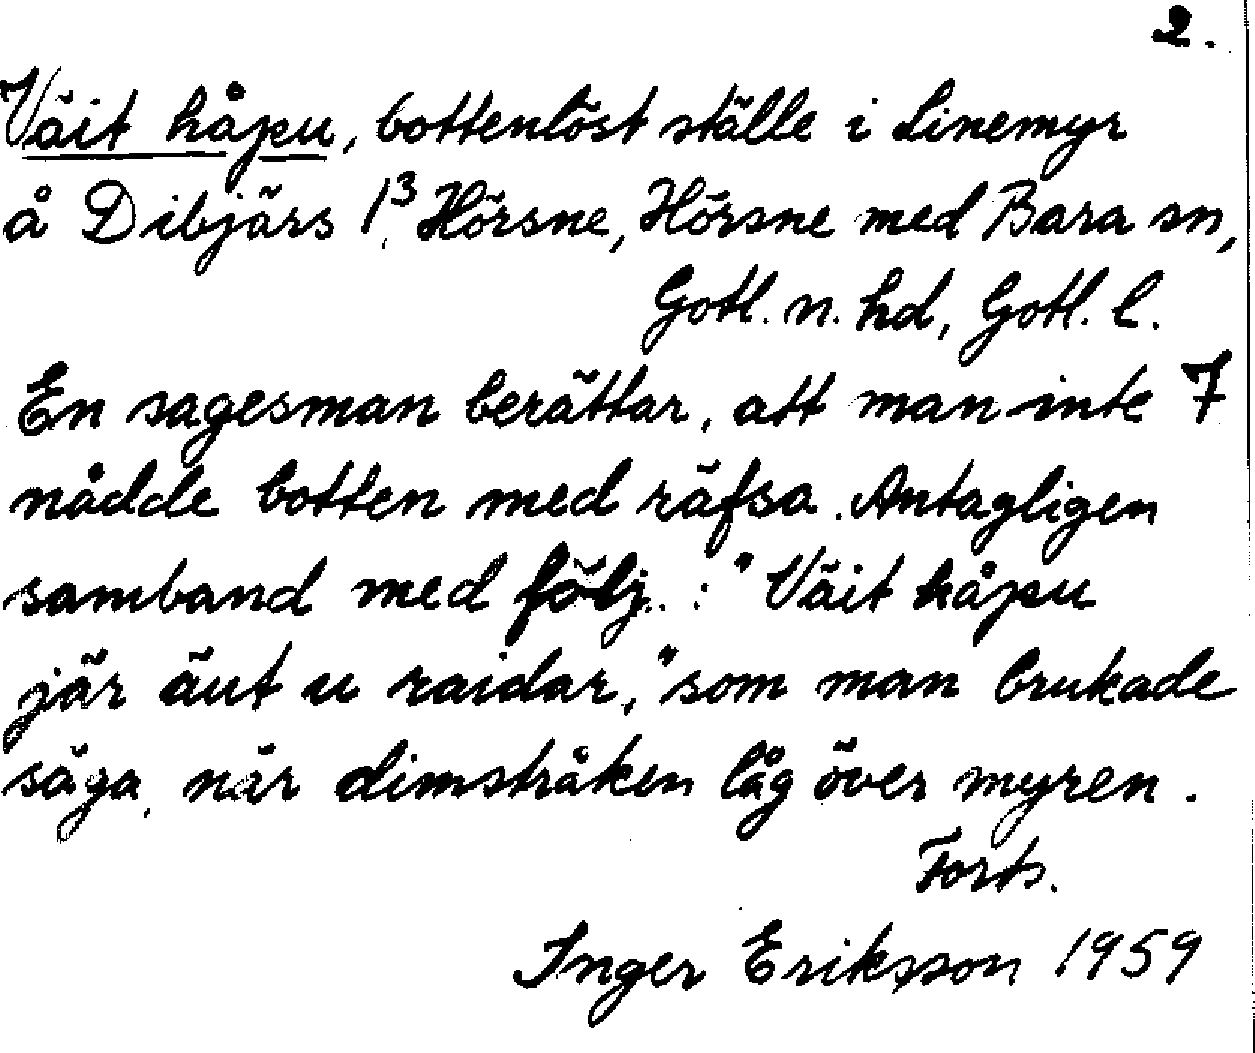 2.
Väit håpu, bottenlöst ställe i Linemyr
å Dibjärs 1³, Hörsne, Hörsne med Bara sn,
Gotl. n. hd, Gotl. l.
En sagesman berättar, att man inte 7
nådde botten med räfsa. Antagligen
samband med följ.: "Väit håpu
jär äut u raidar," som man brukade
säga, när dimstråken låg över myren.
Forts.
Inger Eriksson 1959